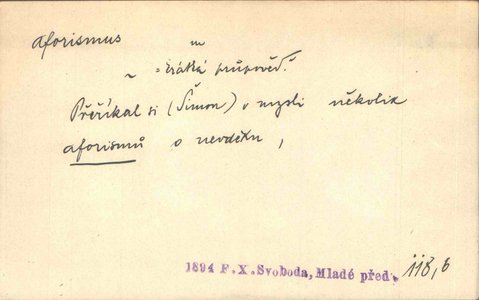 aforismus m
~ = krátká průpověď.
Přeříkal si (Šimon) v mysli několik
aforismů o nevděku,
1894 F.X.Svoboda, Mladé před. 118, 6